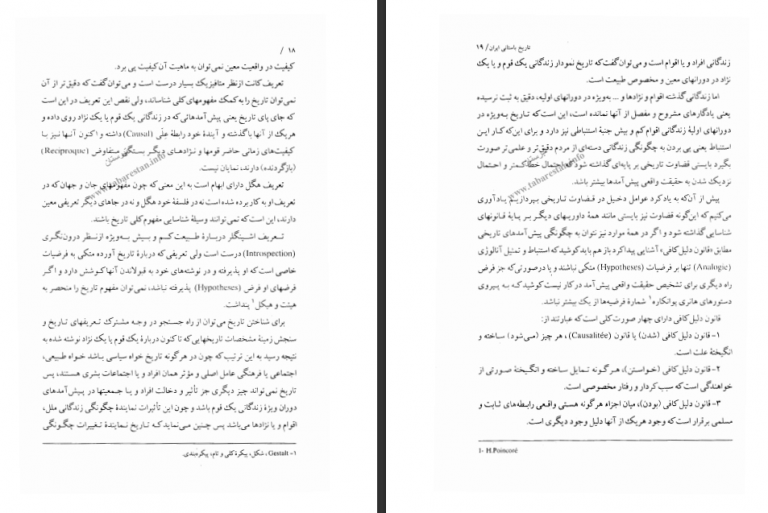 ۱۸ /
کیفیت در واقعیت معین نمی‌توان به ماهیت آن کیفیت پی برد.
تعریف کانت ازنظر متافیزیک بسیار درست است و می‌توان گفت که دقیق‌تر از آن
نمی‌توان تاریخ را به‌کمک مفهومهای کلی شناساند، ولی نقص این تعریف در این است
که جای پای تاریخ یعنی پیش‌آمدهائی که در زندگانی یک قوم یا یک نژاد روی داده و
هریک از آنها با گذشته و آیندهٔ خود رابطهٔ علّی (Causal) داشته و اکنون آنها نیز با
کیفیت‌های زمانی حاضر قومها و نژادهای دیگر بستگی متفاوض (Reciproque)
(بازگردنده) دارند، نمایان نیست.
تعریف هگل دارای ابهام است به این معنی که چون مفهومهای جان و جهان که در
تعریف او به کار برده شده است نه در فلسفهٔ خود هگل و نه در جاهای دیگر تعریفی معین
دارند، این است که نمی‌توانند وسیلهٔ شناسایی مفهوم کلی تاریخ باشند.
تعریف اشپنگلر دربارهٔ طبیعت کم و بسیش به‌ویژه ازنظر درون‌نگری
(Introspection) درست است ولی تعریفی که دربارهٔ تاریخ آورده متکی به فرضیات
خاصی است که او پذیرفته و در نوشته‌های خود به قبولاندن آنها کوشش دارد و اگر
فرضهای او فرض (Hypotheses) پذیرفته نباشد، نمی‌توان مفهوم تاریخ را منحصر به
هیئت و هیکل۱ پنداشت.
برای شناختن تاریخ می‌توان از راه جستجو در وجه مشترک تعریفهای تاریخ و
سنجش زمینهٔ مشخصات تاریخهایی که تاکنون دربارهٔ یک قوم یا یک نژاد نوشته شده به
نتیجه رسید به این ترتیب که چون در هرگونه تاریخ خواه سیاسی باشد خواه طبیعی،
اجتماعی یا فرهنگی عامل اصلی و مؤثر همان افراد و یا اجتماعات بشری هستند، پس
تاریخ نمی‌تواند چیز دیگری جز تأثیر و دخالت افراد و یا جمعیتها در پیش‌آمدهای
دوران ویژهٔ زندگانی یک قوم باشد و چون این تأثیرات نمایندهٔ چگونگی زندگانی ملل،
اقوام و یا نژادها می‌باشد پس چنین می‌نماید که تاریخ نمایندهٔ تغییرات چگونگی
۱- Gestalt، شکل، پیکرهٔ کلی و تام، پیکره‌بندی.
www.tabarestan.info
تاریخ باستانی ایران / ۱۹
زندگانی افراد و یا اقوام است و می‌توان گفت که تاریخ نمودار زندگانی یک قوم و یا یک
نژاد در دورانهای معین و مخصوص طبیعت است.
اما زندگانی گذشته اقوام و نژادها و ... به‌ویژه در دورانهای اولیه، دقیق به ثبت نرسیده
یعنی یادگارهای مشروح و مفصل از آنها نمانده است، این است که تاریخ به‌ویژه در
دورانهای اولیهٔ زندگانی اقوام کم و بیش جنبهٔ استنباطی نیز دارد و برای این‌که کار این
استنباط یعنی پی بردن به چگونگی زندگانی دسته‌ای از مردم دقیق‌تر و علمی‌تر صورت
بگیرد بایستی قضاوت تاریخی بر پایه‌ای گذاشته شود که احتمال خطا کمتر و احتمال
نزدیک شدن به حقیقت واقعی پیش‌آمدها بیشتر باشد.
پیش از آن‌که به یادکرد عوامل دخیل در قضاوت تاریخی بپردازیم یادآوری
می‌کنیم که این‌گونه قضاوت نیز بایستی مانند همهٔ داوریهای دیگر بر پایهٔ قانونهای
شناسایی گذاشته شود و اگر در همهٔ موارد نیز نتوان به چگونگی پیش‌آمدهای تاریخی
مطابق «قانون دلیل کافی» آشنایی پیدا کرد باز هم باید کوشید که استنباط و تمثیل آنالوژی
(Analogie) تنها بر فرضیات (Hypotheses) متکی نباشند و یا درصورتی‌که جز فرض
راه دیگری برای تشخیص حقیقت واقعی پیش‌آمد در کار نیست کوشید که به پیروی
دستورهای هانری پوانکاره۱ شمارهٔ فرضیه‌ها از یک بیشتر نباشد.
قانون دلیل کافی دارای چهار صورت کلی است که عبارتند از:
۱- قانون دلیل کافی (شدن) یا قانون (Causalitée)، هر چیز (می‌شود) ساخته و
انگیختهٔ علت است.
۲- قانون دلیل کافی (خواستن)، هرگونه تمایل ساخته و انگیختهٔ صورتی از
خواهندگی است که سبب کردار و رفتار مخصوصی است.
۳- قانون دلیل کافی (بودن)، میان اجزاء هرگونه هستی واقعی رابطه‌های ثابت و
مسلمی برقرار است که وجود هریک از آنها دلیل وجود دیگری است.
1- H.Poincoré
www.tabarestan.info